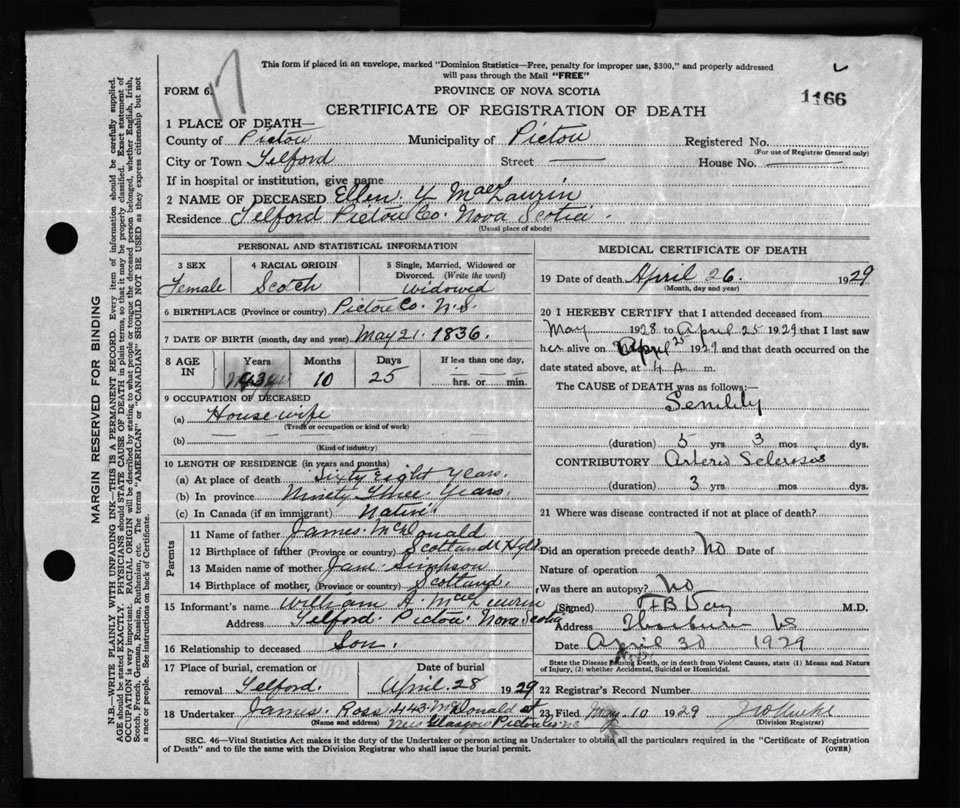 17
This form if placed in an envelope, marked "Dominion Statistics—Free, penalty for improper use, $300," and properly addressed
will pass through the Mail "FREE"
FORM 6.
PROVINCE OF NOVA SCOTIA
1166
CERTIFICATE OF REGISTRATION OF DEATH
1 PLACE OF DEATH—
County of Pictou Municipality of Pictou Registered No.
(For use of Registrar General only)
City or Town Telford Street — House No. —
If in hospital or institution, give name
2 NAME OF DECEASED Ellen MacLaurin
Residence Telford Pictou Co. Nova Scotia.
(Usual place of abode)
PERSONAL AND STATISTICAL INFORMATION
3 SEX 4 RACIAL ORIGIN 5 Single, Married, Widowed or
Divorced. (Write the word)
Female Scotch widowed
6 BIRTHPLACE (Province or country) Pictou Co. N.S.
7 DATE OF BIRTH (month, day and year) May 21. 1836.
8 AGE IN Years Months Days If less than one day,
10 25 hrs. or min.
9 OCCUPATION OF DECEASED
(a) House wife
(Trade or occupation or kind of work)
(b)
(Kind of industry)
10 LENGTH OF RESIDENCE (in years and months)
(a) At place of death Sixty eight Years.
(b) In province Ninety Three Years.
(c) In Canada (if an immigrant) Native
Parents
11 Name of father James McDonald
12 Birthplace of father (Province or country) Scotland
13 Maiden name of mother Jane Simpson
14 Birthplace of mother, (Province or country) Scotland.
15 Informant's name William MacLaurin
Address Telford. Pictou. Nova Scotia
16 Relationship to deceased Son.
17 Place of burial, cremation or Date of burial
removal Telford. April 28 1929
18 Undertaker James. Ross 443 McDonald st
(Name and address) New Glasgow Pictou Co
MEDICAL CERTIFICATE OF DEATH
19 Date of death April 26. 1929
(Month, day and year)
20 I HEREBY CERTIFY that I attended deceased from
May 1928 to April 25 1929 that I last saw
her alive on April 25 1929 and that death occurred on the
date stated above, at 4 A m.
The CAUSE OF DEATH was as follows:—
Senility
(duration) 5 yrs 3 mos dys.
CONTRIBUTORY Arterio Sclerosis
(duration) 3 yrs mos dys.
21 Where was disease contracted if not at place of death?
Did an operation precede death? No Date of
Nature of operation
Was there an autopsy? No
(Signed) F B Day M.D.
Address Thorburn NS
Date April 30 1929
State the Disease causing Death, or in death from Violent Causes, state (1) Means and Nature
of Injury, (2) whether Accidental, Suicidal or Homicidal.
22 Registrar's Record Number
23 Filed May 10 1929
(Division Registrar)
SEC. 46—Vital Statistics Act makes it the duty of the Undertaker or person acting as Undertaker to obtain all the particulars required in the "Certificate of Registration
of Death" and to file the same with the Division Registrar who shall issue the burial permit.
(OVER)
MARGIN RESERVED FOR BINDING
N.B.—WRITE PLAINLY WITH UNFADING INK—THIS IS A PERMANENT RECORD. Every item of information should be carefully supplied.
AGE should be stated EXACTLY. PHYSICIANS should STATE CAUSE OF DEATH in plain terms, so that it may be properly classified. Exact statement of
OCCUPATION is very important. RACIAL ORIGIN will be described by stating to what people or tongue the deceased person belonged, whether English, Irish,
Scotch, French, German, Russian, Ruthenian, etc. The terms "AMERICAN" or "CANADIAN" SHOULD NOT BE USED as they express citizenship but not
a race or people. See instructions on back of Certificate.